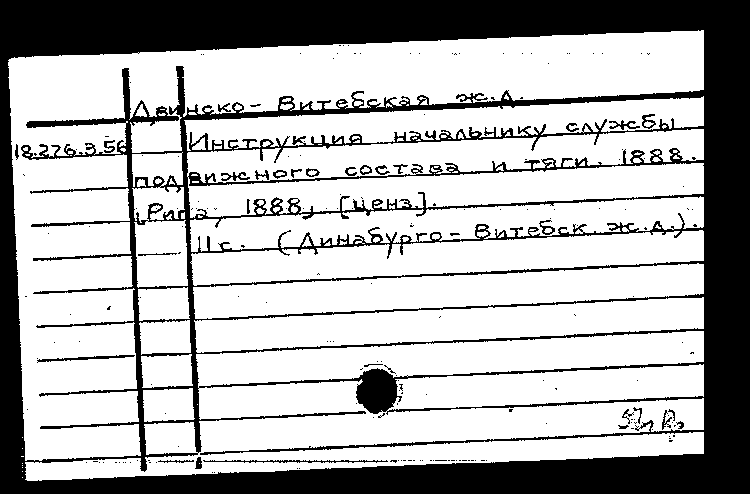 Двинско-Витебская ж.д.
18.276.3.56 Инструкция начальнику службы
подвижного состава и тяги. 1888.
[Рига, 1888], [ценз].
11 с. (Динабурго-Витебск. ж.д.).